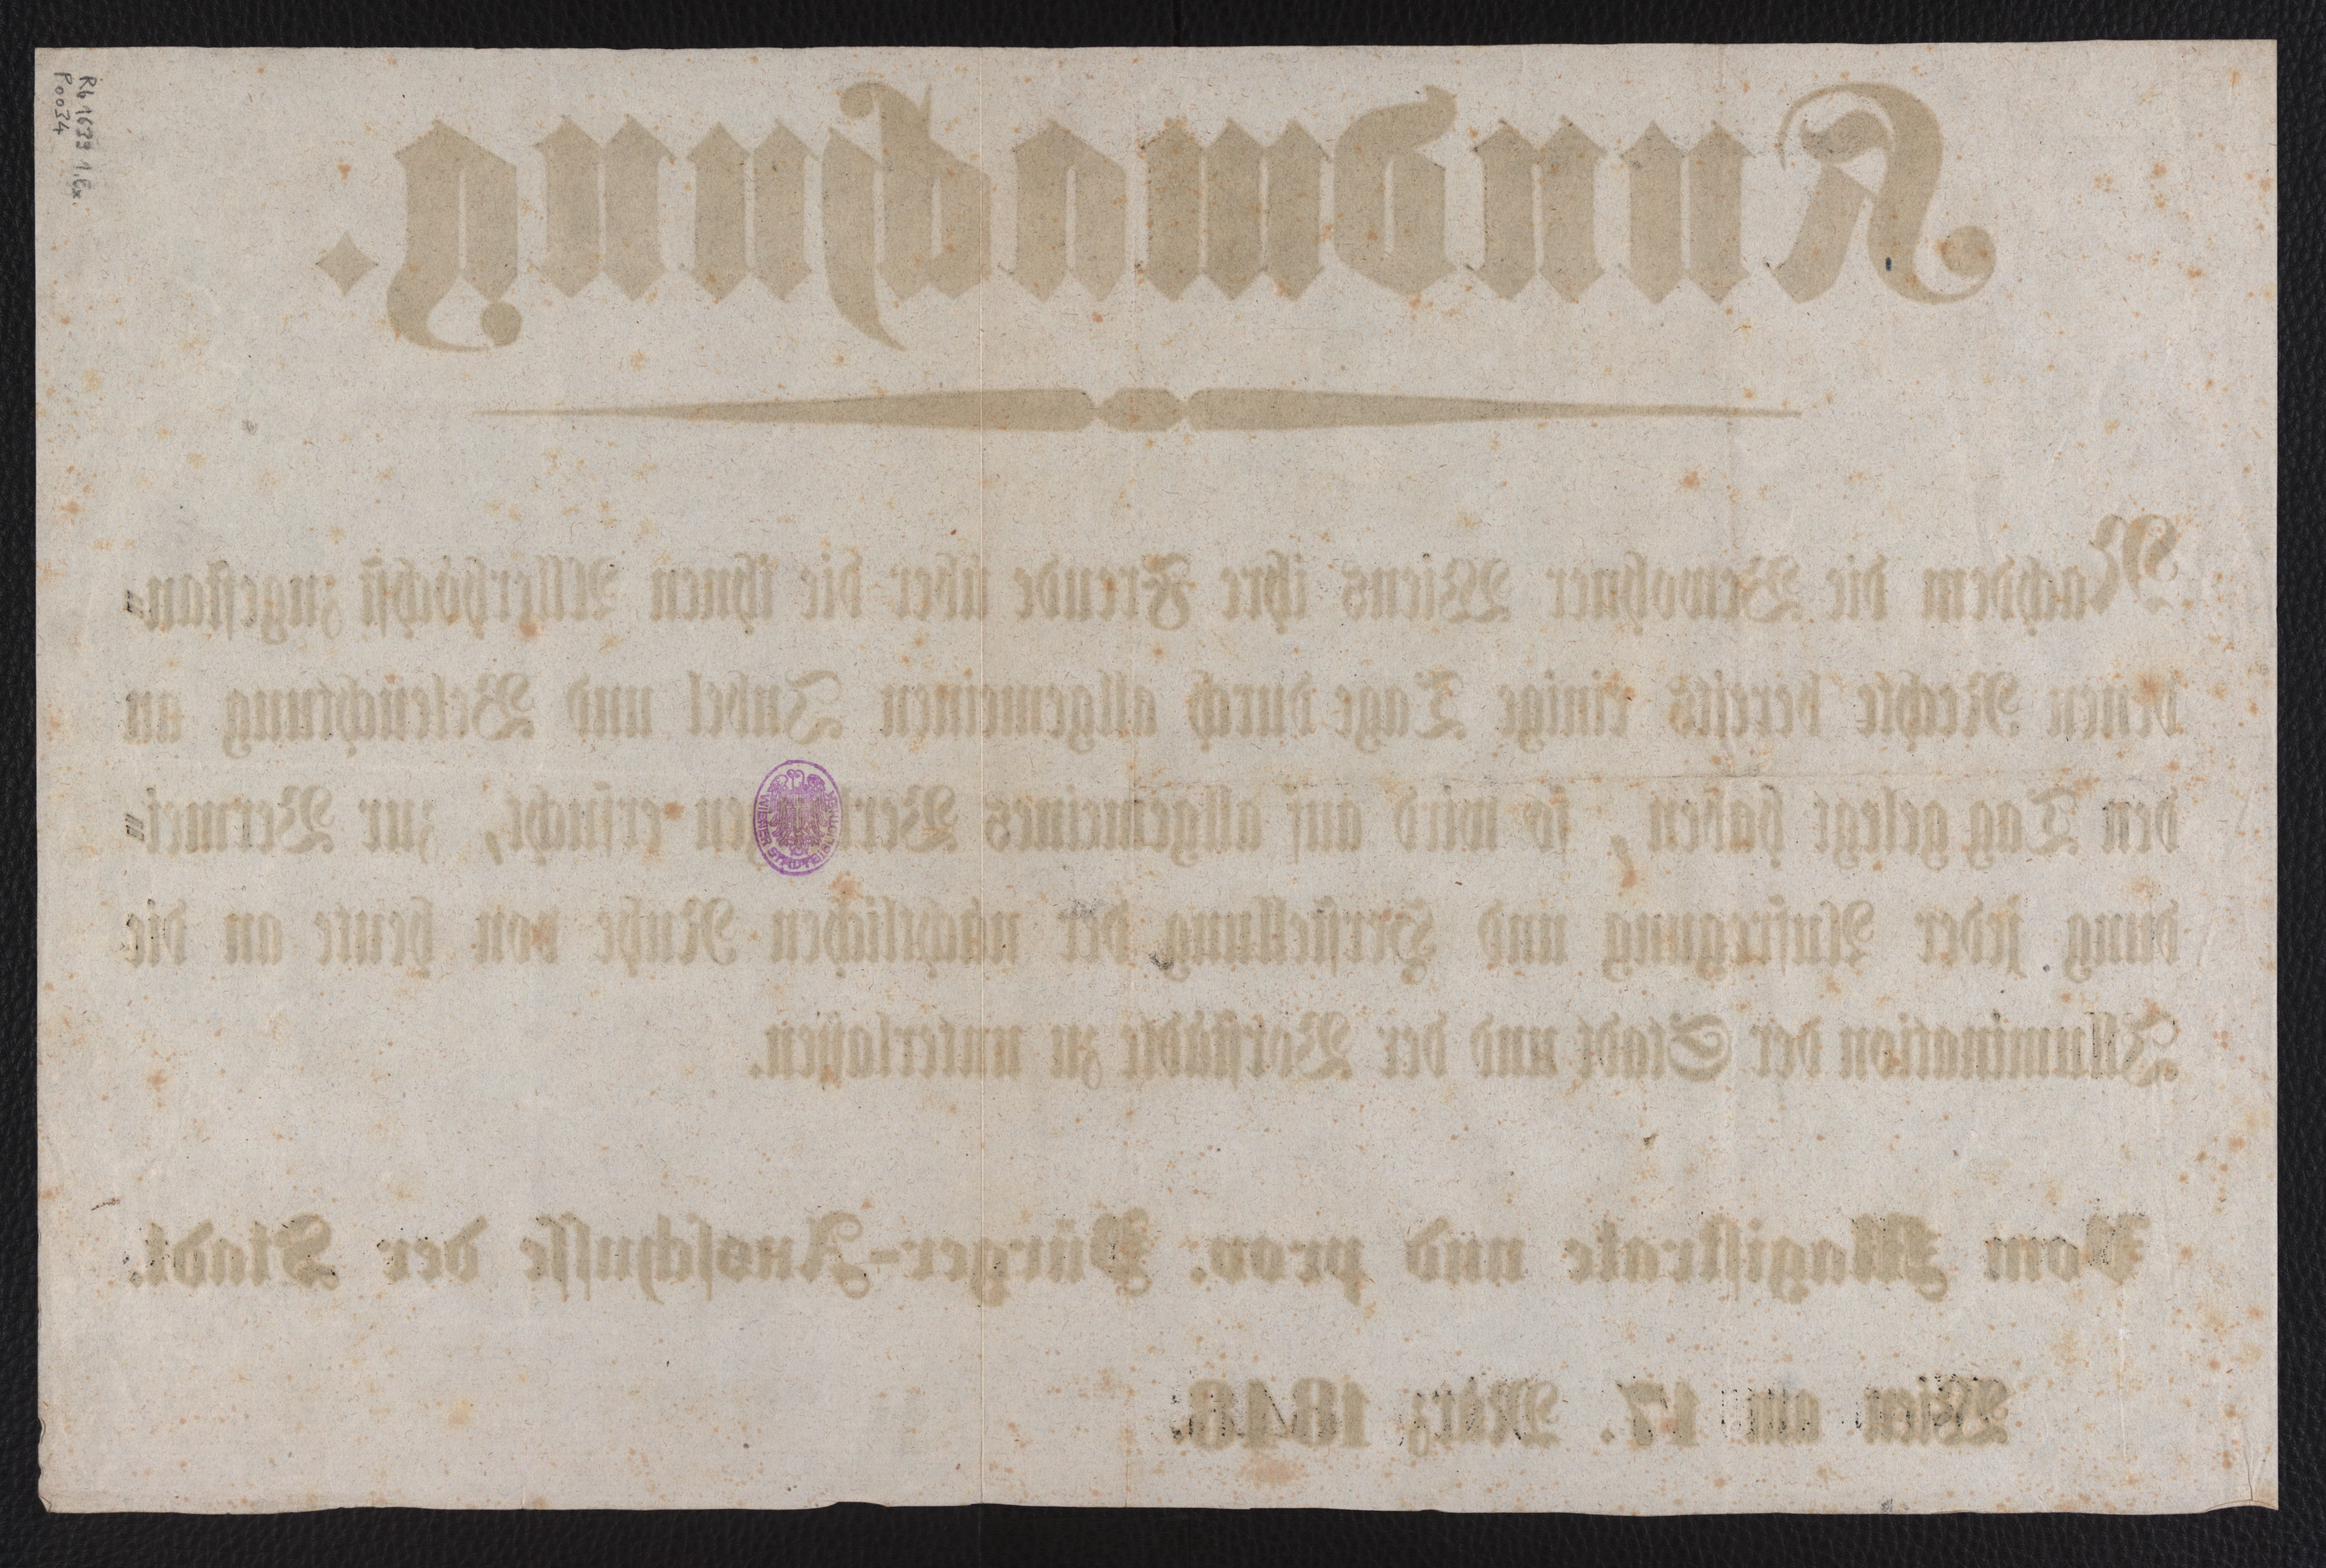 Kundmachung.
Nachdem die Bewohner Wiens ihre Freude über die ihnen Allerhöchst zugestan-
denen Rechte bereits einige Tage durch allgemeinen Jubel und Beleuchtung an
den Tag gelegt haben, so wird auf allgemeines Verlangen ersucht, zur Vermei-
dung jeder Aufregung und Herstellung der nächtlichen Ruhe von heute an die
Illumination der Stadt und der Vorstädte zu unterlassen.
Vom Magistrate und prov. Bürger-Ausschusse der Stadt.
Wien am 17. März 1848.
Rb 1639 1. Ex.
P0034
WIENER STADTBIBLIOTHEK